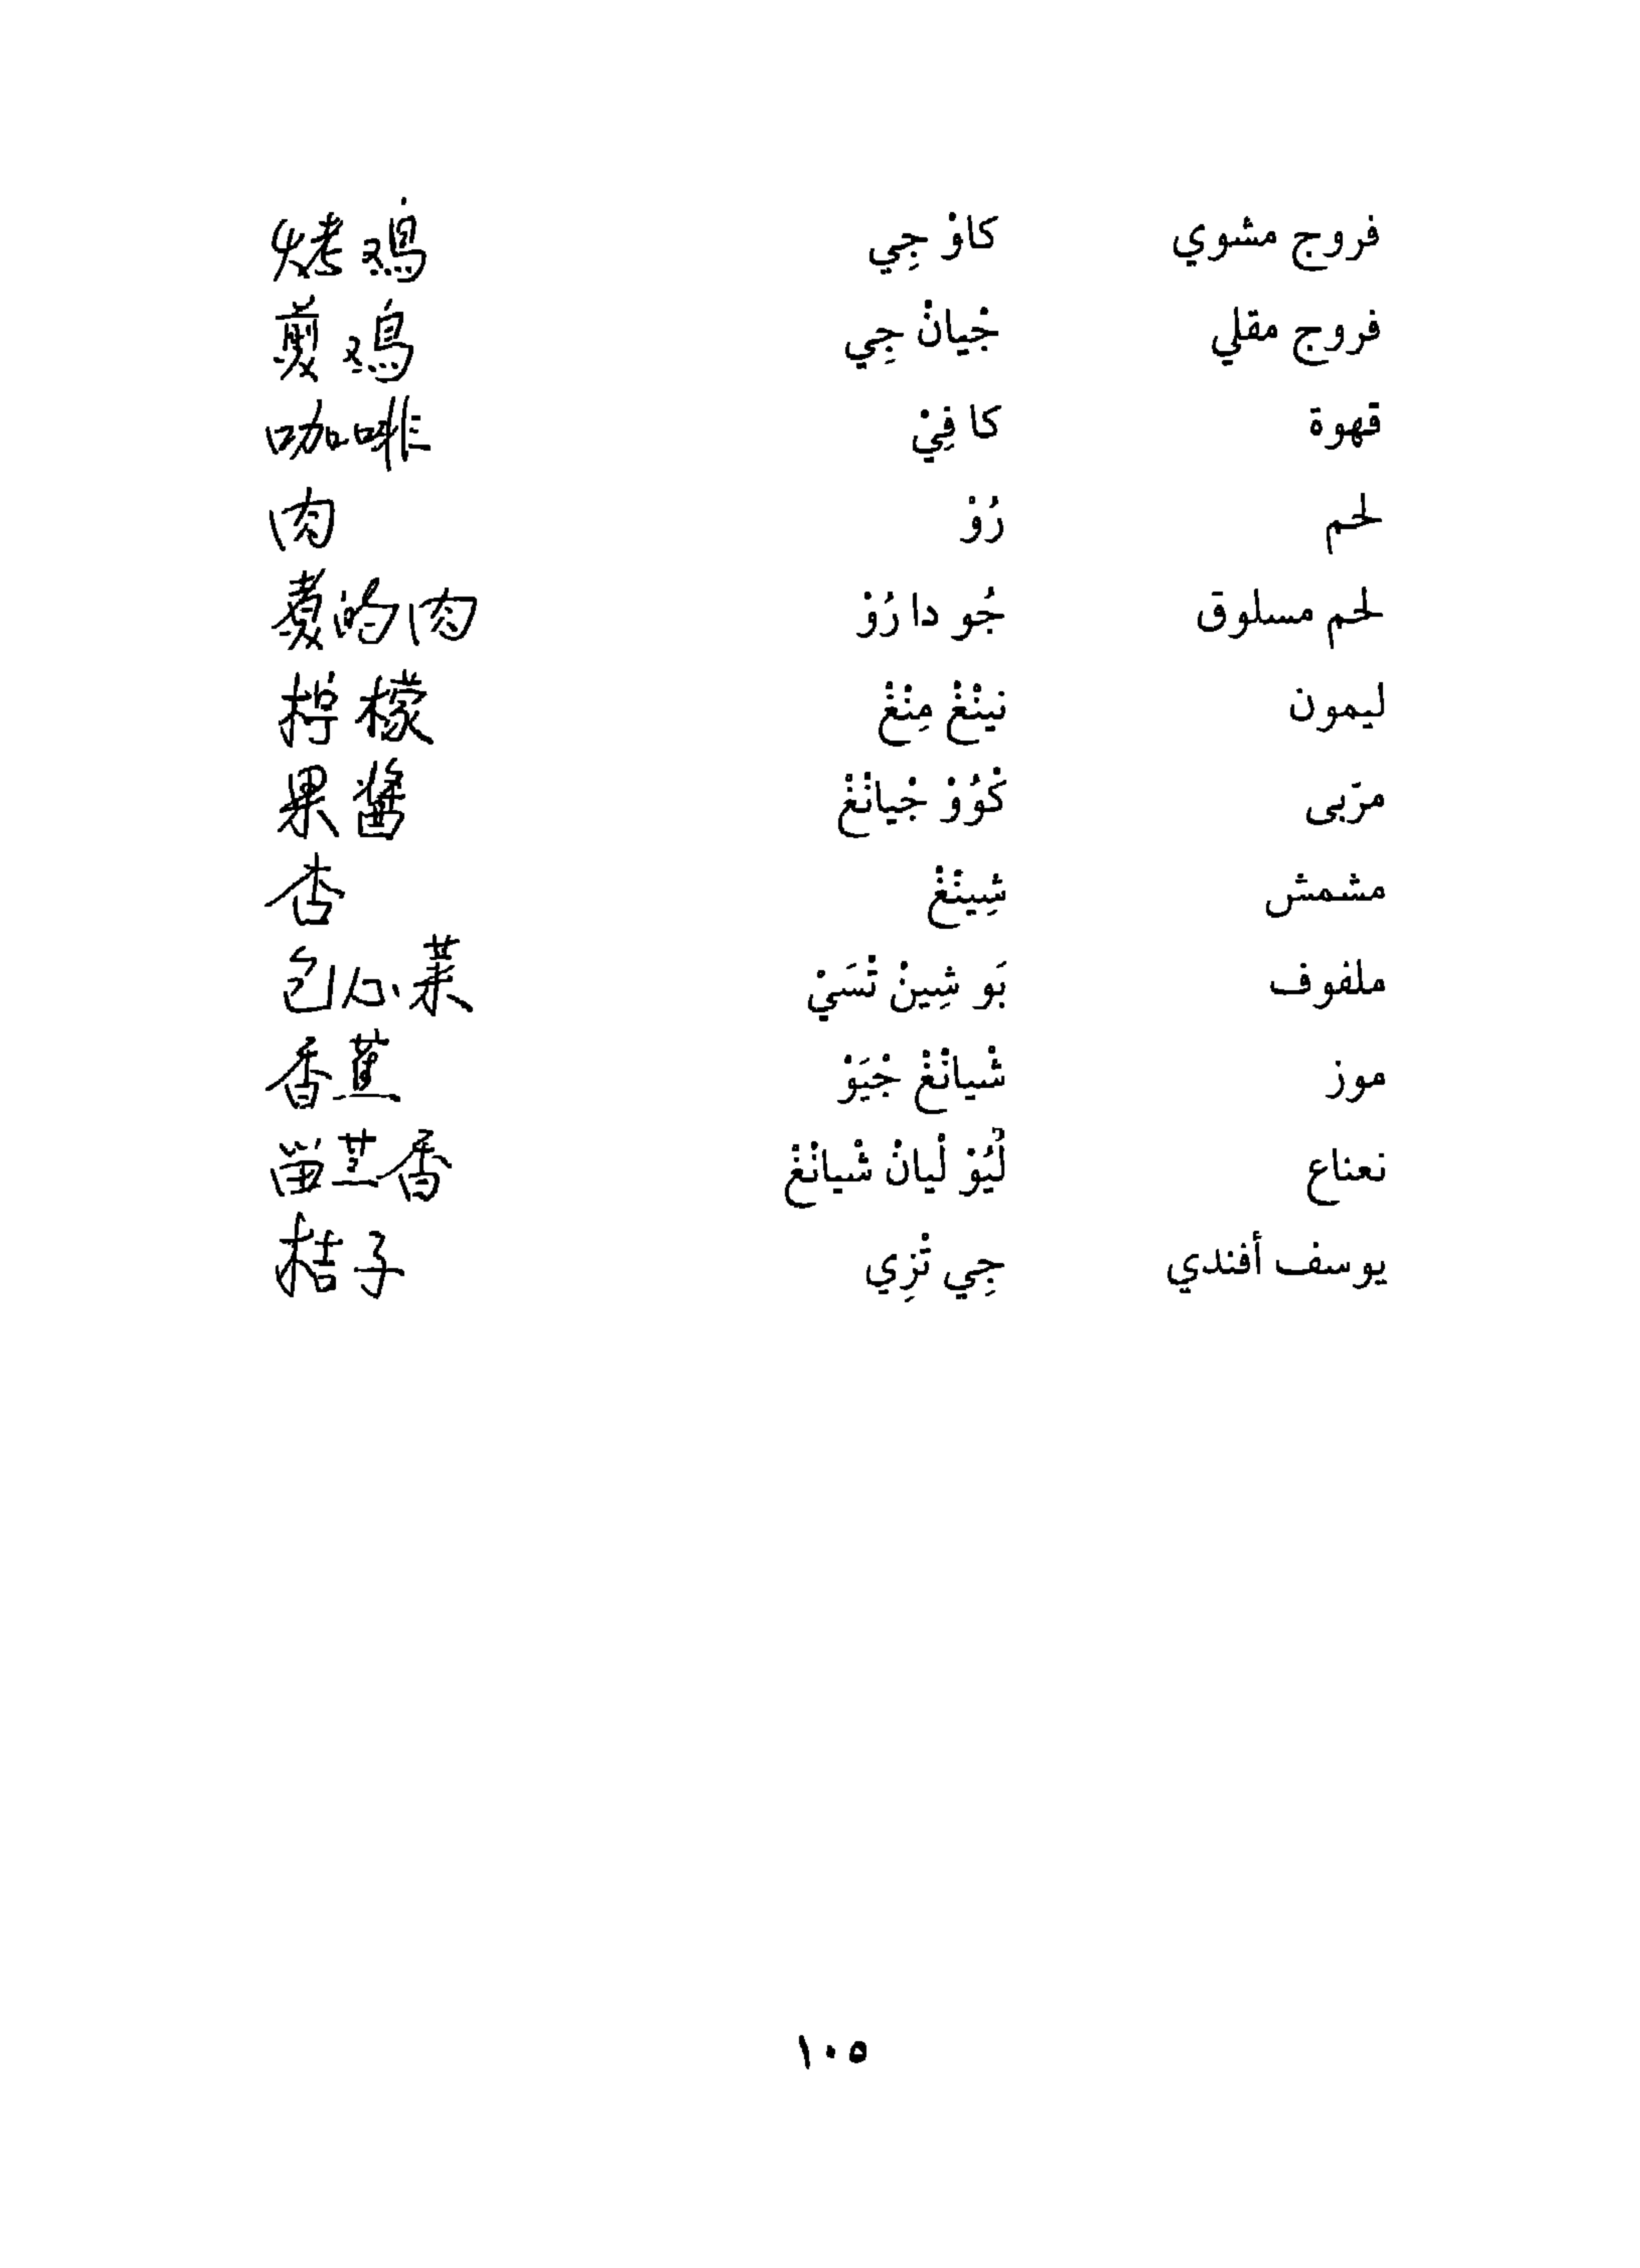 فروج مشوي كاوْ جِي 烤鸡
فروج مقلي جْيانْ جِي 煎鸡
قهوة كا فِيْ 咖啡
لحم رُوْ 肉
لحم مسلوق جُو دا رُوْ 煮的肉
ليمون نينْغْ مِنْغْ 柠檬
مرّبى كْوُوْ جْيانْغْ 果醬
مشمش شِينْغْ 杏
ملفوف بَو شِينْ تْسَيْ 包心菜
موز شْيانْغْ جْيَوْ 香蕉
نعناع لْيُوْ لْيانْ شْيانْغْ 香
يوسف أفندي جِي تْزِي 桔子
١٠٥